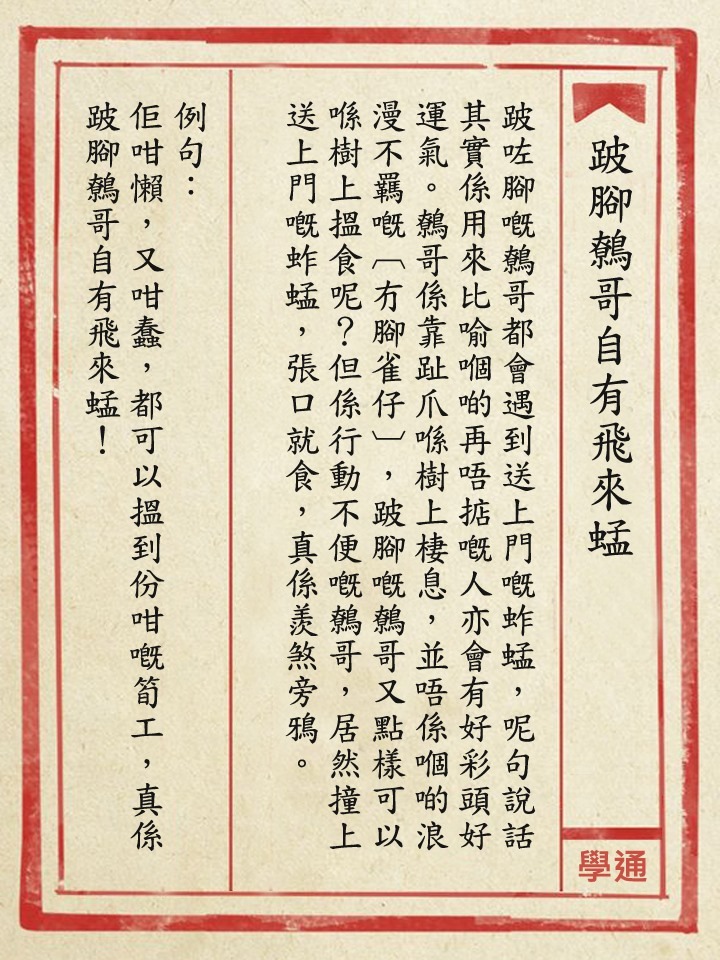 跛腳鷯哥自有飛來蜢
學通
跛咗腳嘅鷯哥都會遇到送上門嘅蚱蜢，呢句說話
其實係用來比喻嗰啲再唔掂嘅人亦會有好彩頭好
運氣。鷯哥係靠趾爪喺樹上棲息，並唔係嗰啲浪
漫不羈嘅〔冇腳雀仔〕，跛腳嘅鷯哥又點樣可以
喺樹上搵食呢？但係行動不便嘅鷯哥，居然撞上
送上門嘅蚱蜢，張口就食，真係羨煞旁鴉。
例句：
佢咁懶，又咁蠢，都可以搵到份咁嘅筍工，真係
跛腳鷯哥自有飛來蜢！